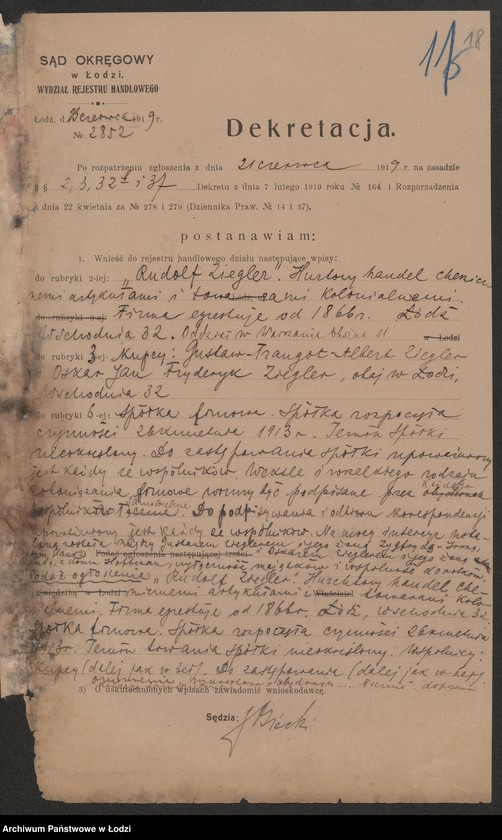 18
SĄD OKRĘGOWY
w Łodzi,
WYDZIAŁ REJESTRU HANDLOWEGO
Łódź, d. czerwca 1919 r.
№ 2852
Dekretacja.
Po rozpatrzeniu zgłoszenia z dnia 21 czerwca 1919 r. na zasadzie
§ § 2, 3, 32 i 37 Dekretu z dnia 7 lutego 1919 roku № 164 i Rozporządzenia
z dnia 22 kwietnia za № 278 i 279 (Dziennika Praw. № 14 i 37),
postanawiam:
1. Wnieść do rejestru handlowego działu następujące wpisy:
do rubryki 2-iej: „Rudolf Ziegler". Hurtowy handel chemicz-
nemi artykułami i towarami kolonialnemi.
do rubryki 3-ej: Firma egzystuje od 1866 r. Łódź
Wschodnia 32. Oddział w Warszawie 11. w Łodzi
do rubryki 3 ej: Kupcy: Gustaw-Traugot-Albert Ziegler
i Oskar Jan Fryderyk Ziegler, obaj w Łodzi,
Wschodnia 32
do rubryki 6-ej: Spółka firmowa. Spółka rozpoczęła
czynności 26 kwietnia 1913 r. Termin spółki
nieokreślony. Do zastępowania spółki upoważniony
jest każdy ze wspólników. Weksle i wszelkiego rodzaju
zobowiązania firmowe winny być podpisane przez
wspólników łącznie. Do podpisywania i odbioru korespondencji
upoważniony jest każdy ze wspólników. Na mocy intercyz
między Gustawem Zieglerem i jego żoną
Podać ogłoszenie następującej treści: Oskarem Zieglerem i jego żoną
wyłączność majątkowa i wspólność dorobku.
Podać ogłoszenie „Rudolf Ziegler" Hurtowy handel che-
z siedzibą w Łodzi micznemi artykułami i Właściciel towarami kolo-
nialnemi. Firma egzystuje od 1866 r. Łódź, Wschodnia 32
Spółka firmowa. Spółka rozpoczęła czynności 26 kwietnia
1913 r. Termin trwania spółki nieokreślony. Wspólnicy:
Kupcy (dalej jak w 3 ej). Do zastępowania (dalej jak w 6 ej)
3) O uskutecznionych wpisach zawiadomić wnioskodawcę.
Sędzia:
Archiwum Państwowe w Łodzi